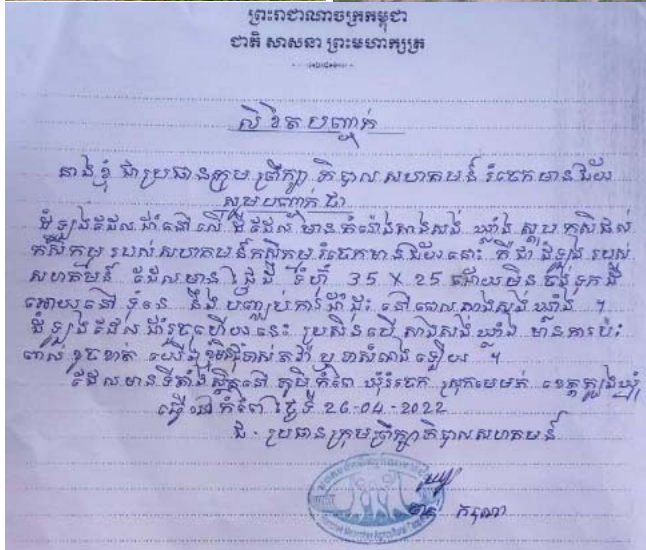 ព្រះរាជាណាចក្រកម្ពុជា
ជាតិ សាសនា ព្រះមហាក្សត្រ
លិខិតបញ្ជាក់
នាងខ្ញុំ ជាប្រធានក្រុម ព្រឹក្សា ភិបាល សហគមន៍ រំចេកមានជ័យ
សូមបញ្ជាក់ ជា
ដំឡូងដែល ដាំនៅលើ ដីដែល មានគំរោងសាងសង់ ឃ្លាំង ស្តុប កសិផល
កសិកម្ម របស់ សហគមន៍កសិកម្ម រំចេកមានជ័យនោះ គឺជា ដំឡូង របស់
សហគមន៍ ដែលមាន ផ្ទៃដី ទំហំ 35 X 25 ដោយមិនចង់ទុកដី
អោយនៅ ទំនេ នឹង បញ្ឈប់ការដាំដុះ នៅពេលសាងសង់ ឃ្លាំង ។
ដំឡូងដែល ដាំរួចហើយនេះ ប្រសិនបើ សាងសង់ឃ្លាំង មានការប៉ះ
ពាល់ ខូចខាត យើងខ្ញុំមិនជំទាស់តវ៉ា ឬ ទាសំណងឡើយ ។
ដែលមានទីតាំងស្ថិតនៅ ភូមិ កំពៃ ឃុំរំចេក ស្រុកមេមត់ ខេត្តត្បូងឃ្មុំ
ធ្វើនៅកំពៃ ថ្ងៃទី 26-04-2022
ជ. ប្រធានក្រុមព្រឹក្សាភិបាលសហគមន៍
ករុណា